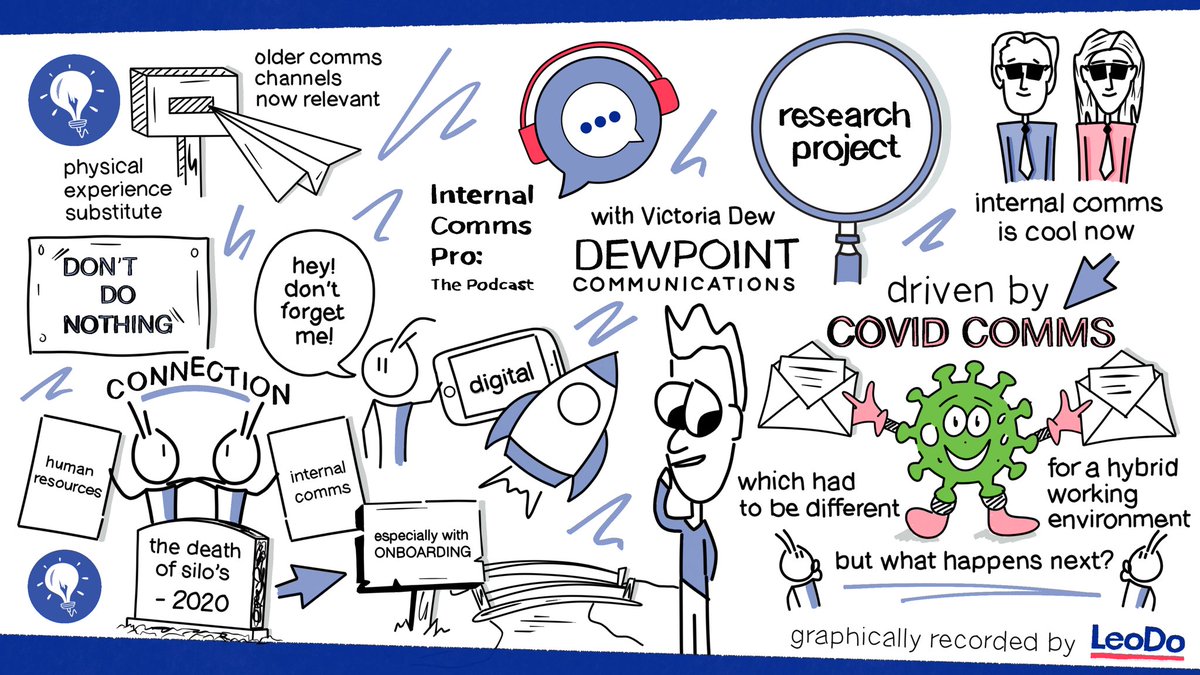 older comms
channels
now relevant
physical
experience
substitute
DON'T
DO
NOTHING
hey!
don't
forget
me!
Internal
Comms
Pro:
The Podcast
with Victoria Dew
DEWPOINT
COMMUNICATIONS
research
project
internal comms
is cool now
driven by
COVID COMMS
which had
to be different
for a hybrid
working
environment
but what happens next?
digital
CONNECTION
human
resources
internal
comms
the death
of silo's
- 2020
especially with
ONBOARDING
graphically recorded by LeoDo